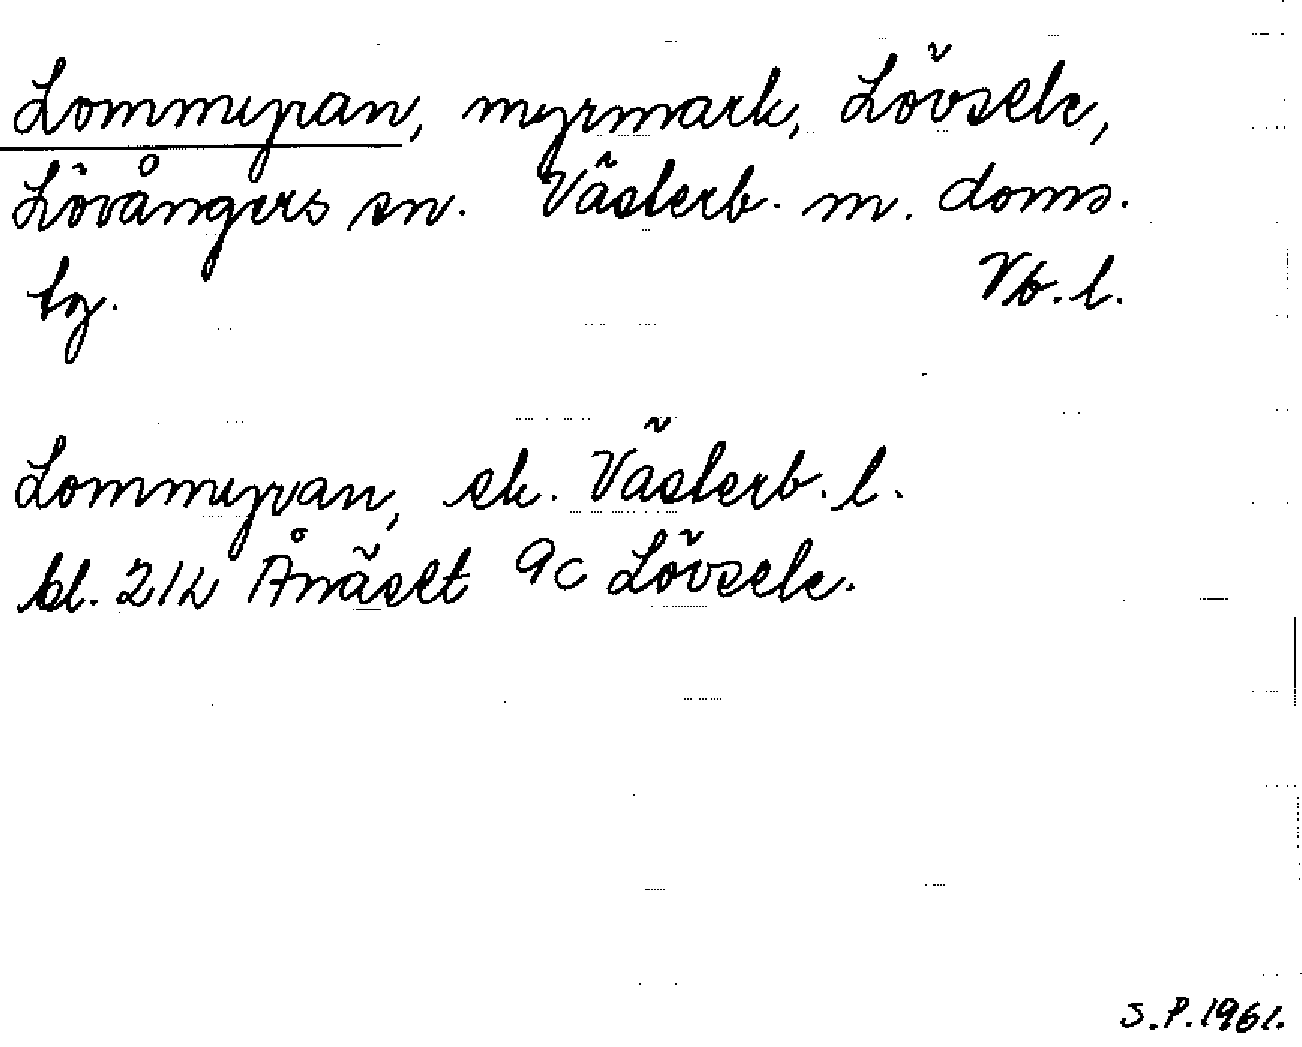 Lommyran, myrmark, Lövsele,
Lövångers sn. Västerb. m. doms.
tg. Vb. l.
Lommyran, ek. Västerb. l.
bl. 21L Ånäset 9c Lövsele.
S.P. 1961.